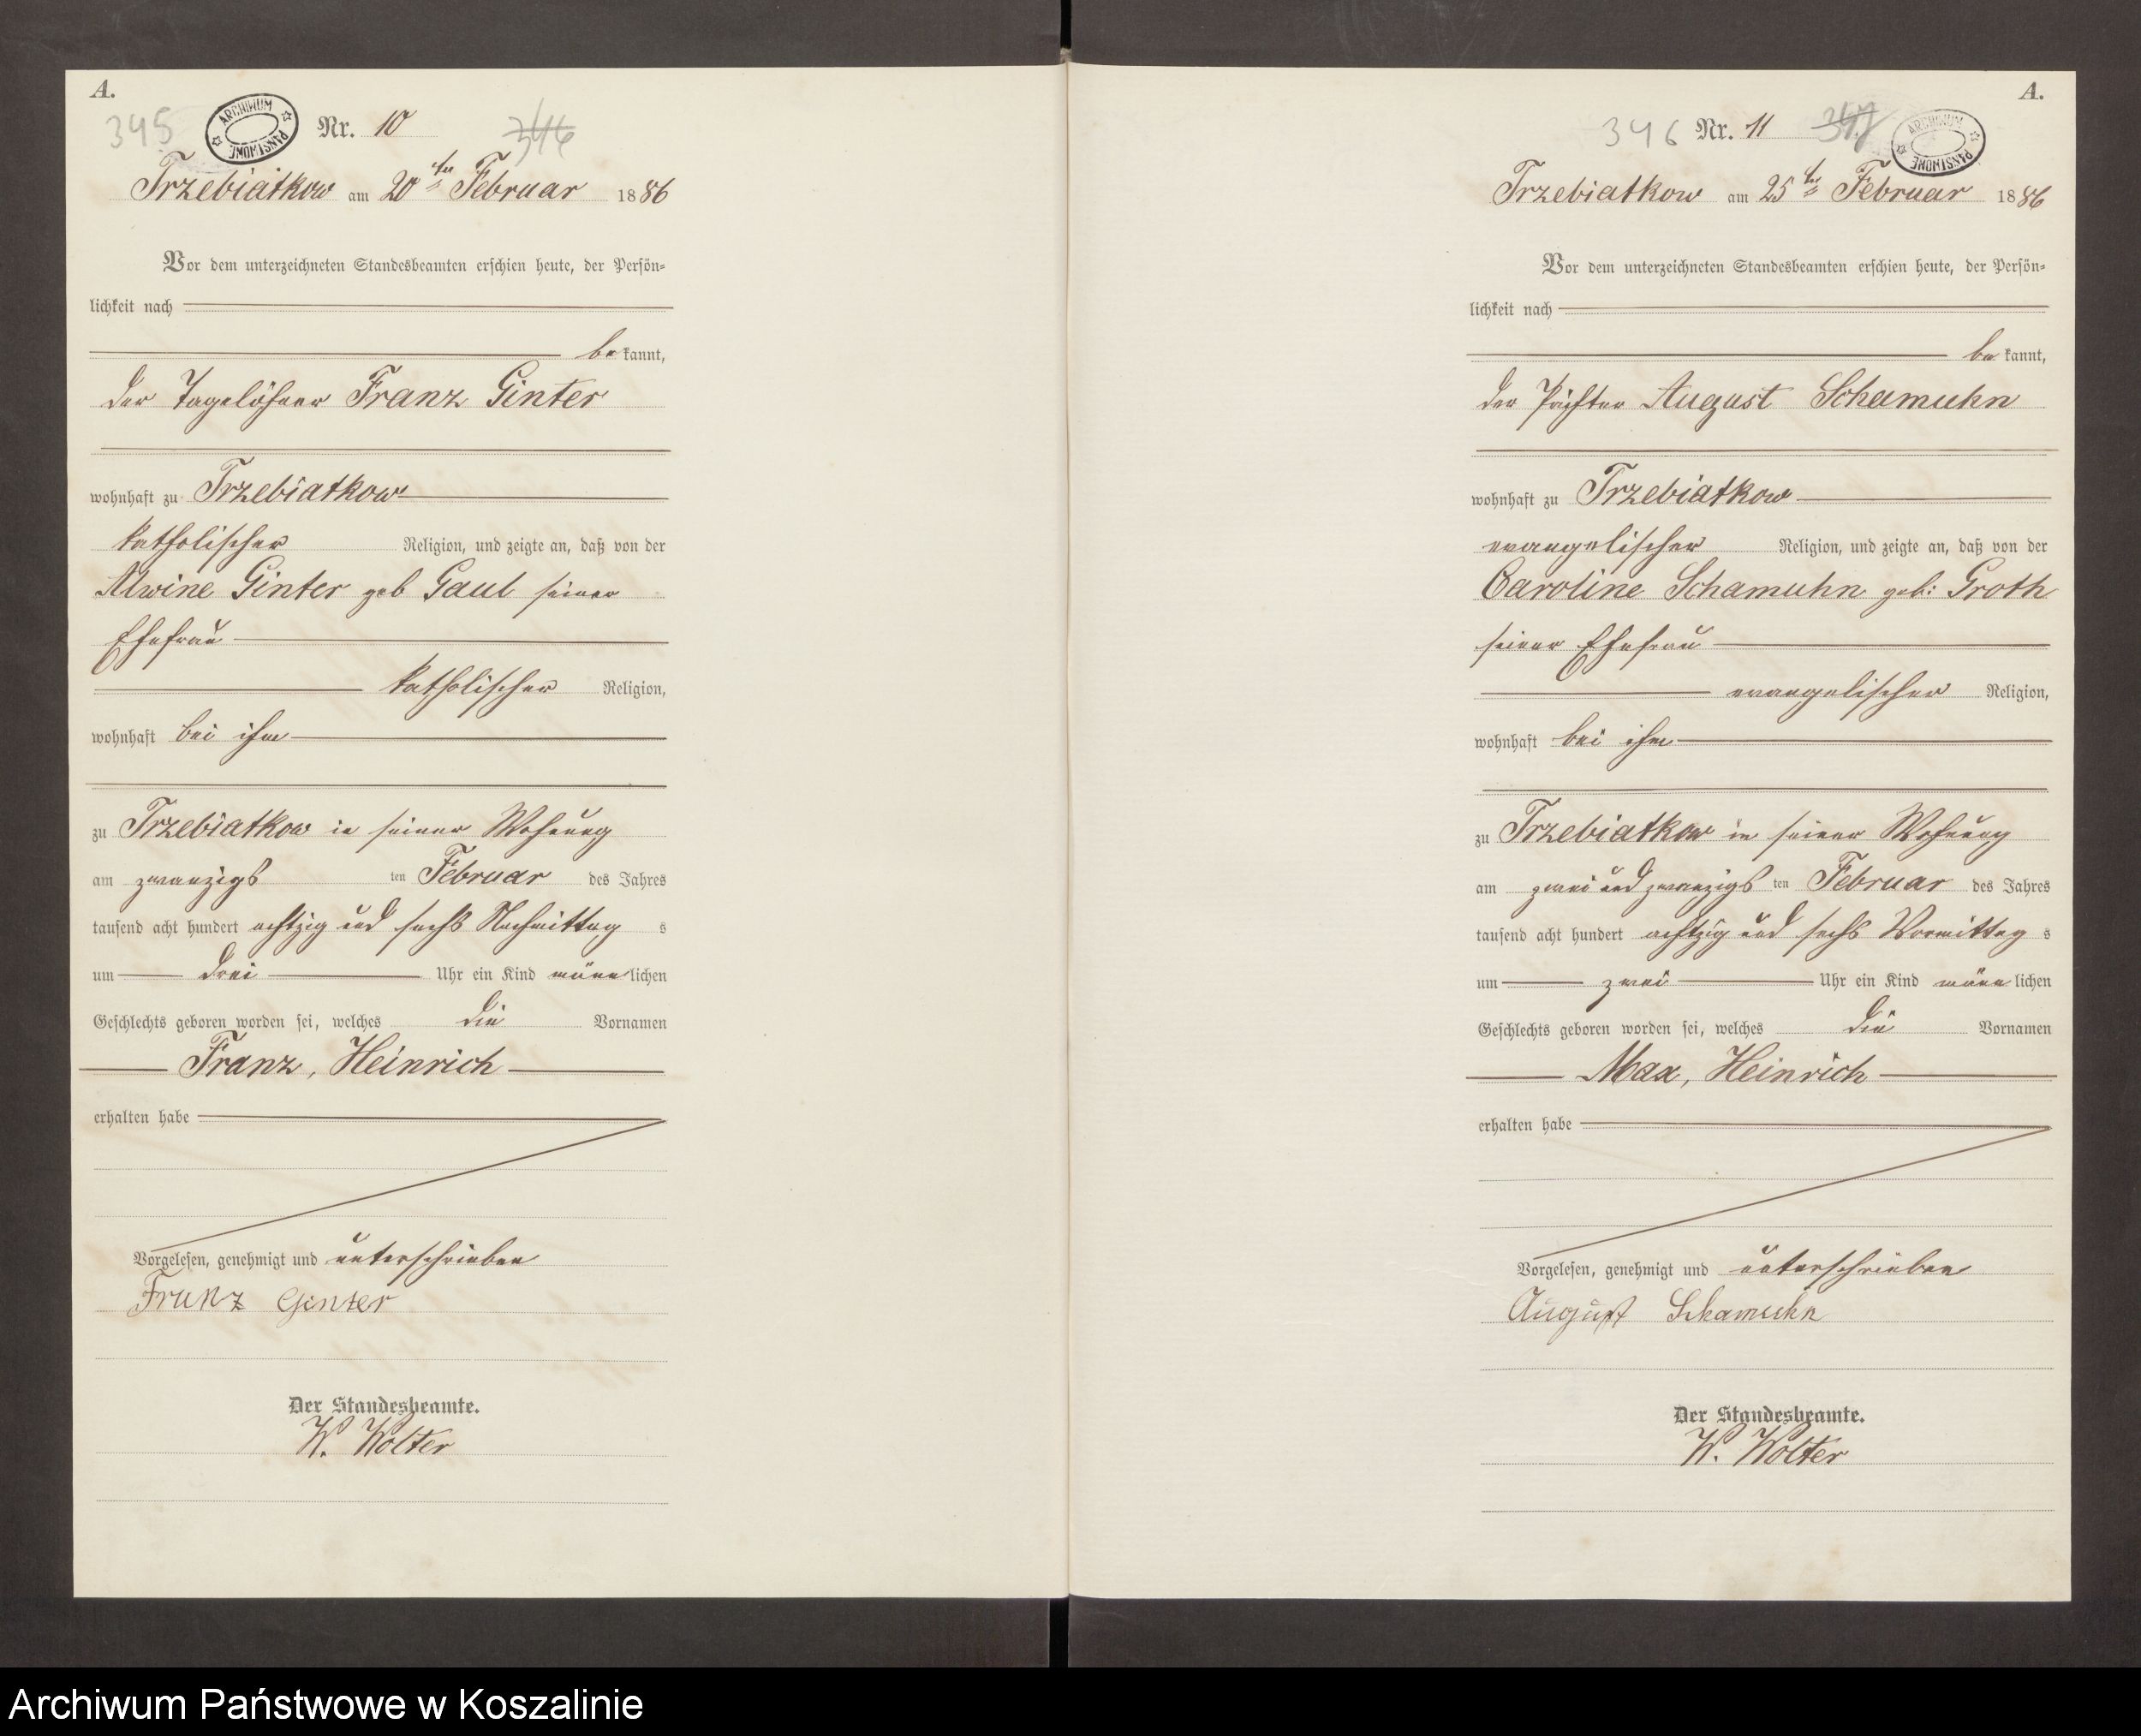 A.
345
ARCHIWUM PAŃSTWOWE
Nr. 10
346
Trzebiatkow am 20ten Februar 1886
Vor dem unterzeichneten Standesbeamten erschien heute, der Persön-
lichkeit nach
be kannt,
der Tagelöhner Franz Ginter
wohnhaft zu Trzebiatkow
katholischer Religion, und zeigte an, daß von der
Alwine Ginter geb Gaul seiner
Ehefrau
katholischer Religion,
wohnhaft bei ihm
zu Trzebiatkow in seiner Wohnung
am zwanzigs ten Februar des Jahres
tausend acht hundert achtzig und sechs Nachmittag s
um drei Uhr ein Kind männ lichen
Geschlechts geboren worden sei, welches die Vornamen
Franz, Heinrich
erhalten habe
Vorgelesen, genehmigt und unterschrieben
Franz Ginter
Der Standesbeamte.
W. Wolter
A.
346
Nr. 11
347
ARCHIWUM PAŃSTWOWE
Trzebiatkow am 25ten Februar 1886
Vor dem unterzeichneten Standesbeamten erschien heute, der Persön-
lichkeit nach
be kannt,
der Pächter August Schamuhn
wohnhaft zu Trzebiatkow
evangelischer Religion, und zeigte an, daß von der
Caroline Schamuhn geb: Groth
seiner Ehefrau
evangelischer Religion,
wohnhaft bei ihm
zu Trzebiatkow in seiner Wohnung
am zwei und zwanzigs ten Februar des Jahres
tausend acht hundert achtzig und sechs Vormittag s
um zwei Uhr ein Kind männ lichen
Geschlechts geboren worden sei, welches die Vornamen
Max, Heinrich
erhalten habe
Vorgelesen, genehmigt und unterschrieben
August Schamuhn
Der Standesbeamte.
W. Wolter
Archiwum Państwowe w Koszalinie